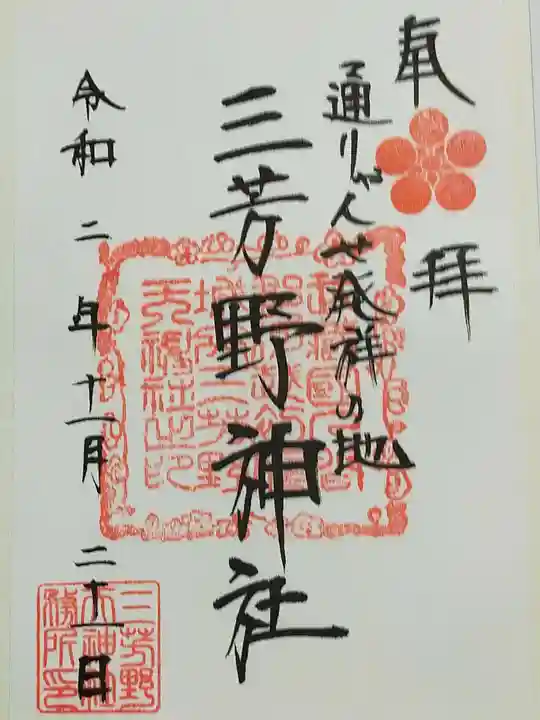 奉拝
通りゃんせ発祥の地
三芳野神社
令和二年十一月二十一日
三芳野
天神社
務所印